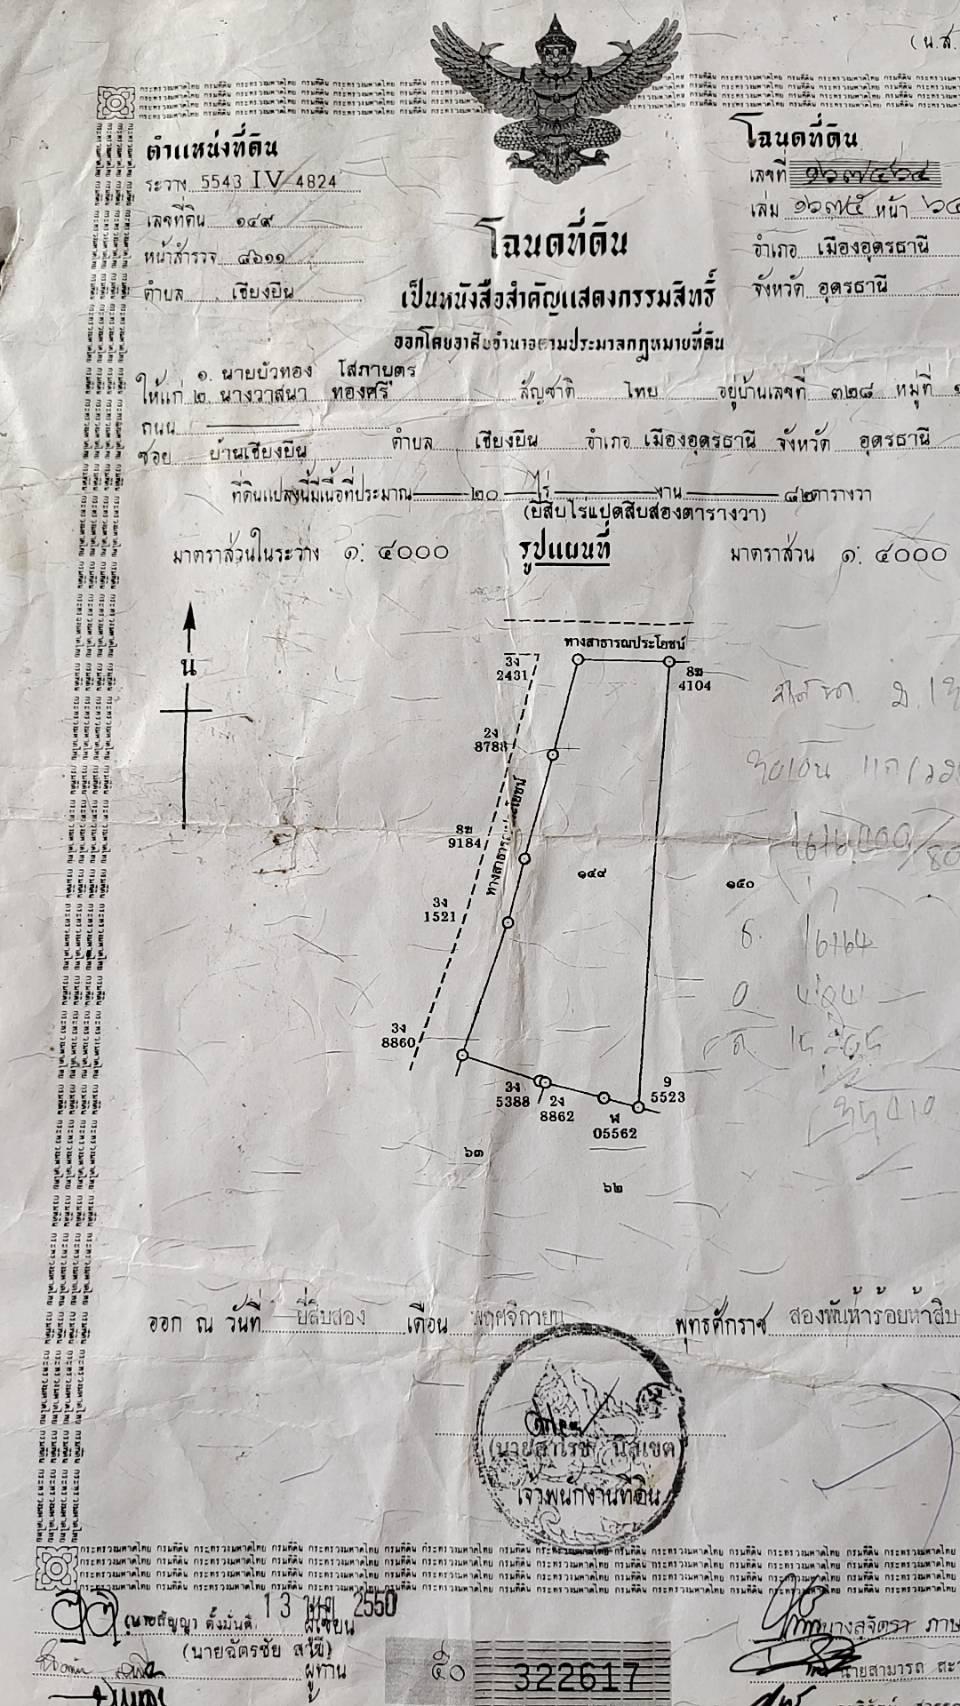 (น.ส.
ตำแหน่งที่ดิน
ระวาง 5543 IV 4824
เลขที่ดิน ๑๔๙
หน้าสำรวจ ๔๖๑๑
ตำบล เชียงยืน
โฉนดที่ดิน
เลขที่ ๑๖๗๔๖๔
เล่ม ๑๖๗๕ หน้า ๖๔
อำเภอ เมืองอุดรธานี
จังหวัด อุดรธานี
โฉนดที่ดิน
เป็นหนังสือสำคัญแสดงกรรมสิทธิ์
ออกโดยอาศัยอำนาจตามประมวลกฎหมายที่ดิน
๑. นายบัวทอง โสภาบุตร
ให้แก่ ๒. นางวาสนา ทองศรี สัญชาติ ไทย อยู่บ้านเลขที่ ๓๒๘ หมู่ที่ ๑
ถนน
ซอย บ้านเชียงยืน ตำบล เชียงยืน อำเภอ เมืองอุดรธานี จังหวัด อุดรธานี
ที่ดินแปลงนี้มีเนื้อที่ประมาณ ๒๐ ไร่ งาน ๘๒ ตารางวา
(ยี่สิบไร่แปดสิบสองตารางวา)
มาตราส่วนในระวาง ๑: ๔๐๐๐ รูปแผนที่ มาตราส่วน ๑: ๔๐๐๐
น
ทางสาธารณประโยชน์
3ง
2431
8ฆ
4104
2ง
8788
8ฆ
9184
ทางสาธารณประโยชน์
๑๔๙
๑๕๐
3ง
1521
3ง
8860
3ง
5388
2ง
8862
ฬ
05562
9
5523
๖๓
๖๒
ออก ณ วันที่ ยี่สิบสอง เดือน พฤศจิกายน พุทธศักราช สองพันห้าร้อยห้าสิบ
(นายสาโรช นิลเขต)
เจ้าพนักงานที่ดิน
(นายสัญญา ตั้งมั่นดี) ผู้เขียน
2550
(นายฉัตรชัย สุขี)
ผู้ทาน
๕๐ 322617
นางสุจิตรา ภาษ
นายสามารถ สะ